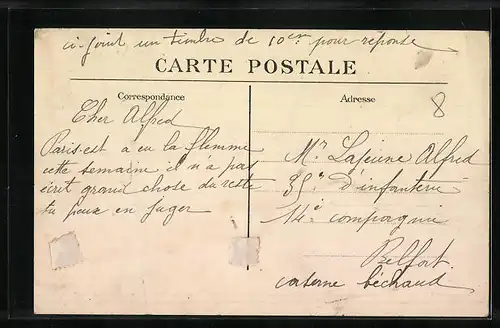 ci-joint un timbre de 10 cs pour réponse
CARTE POSTALE
Correspondance
Adresse
8
Cher Alfred
Paris-est a eu la flemme
cette semaine il n'a pas
écrit grand chose du reste
tu peux en juger
Mr Lajeune Alfred
35e D'infanterie
14e compagnie
Belfort
caserne béchaud